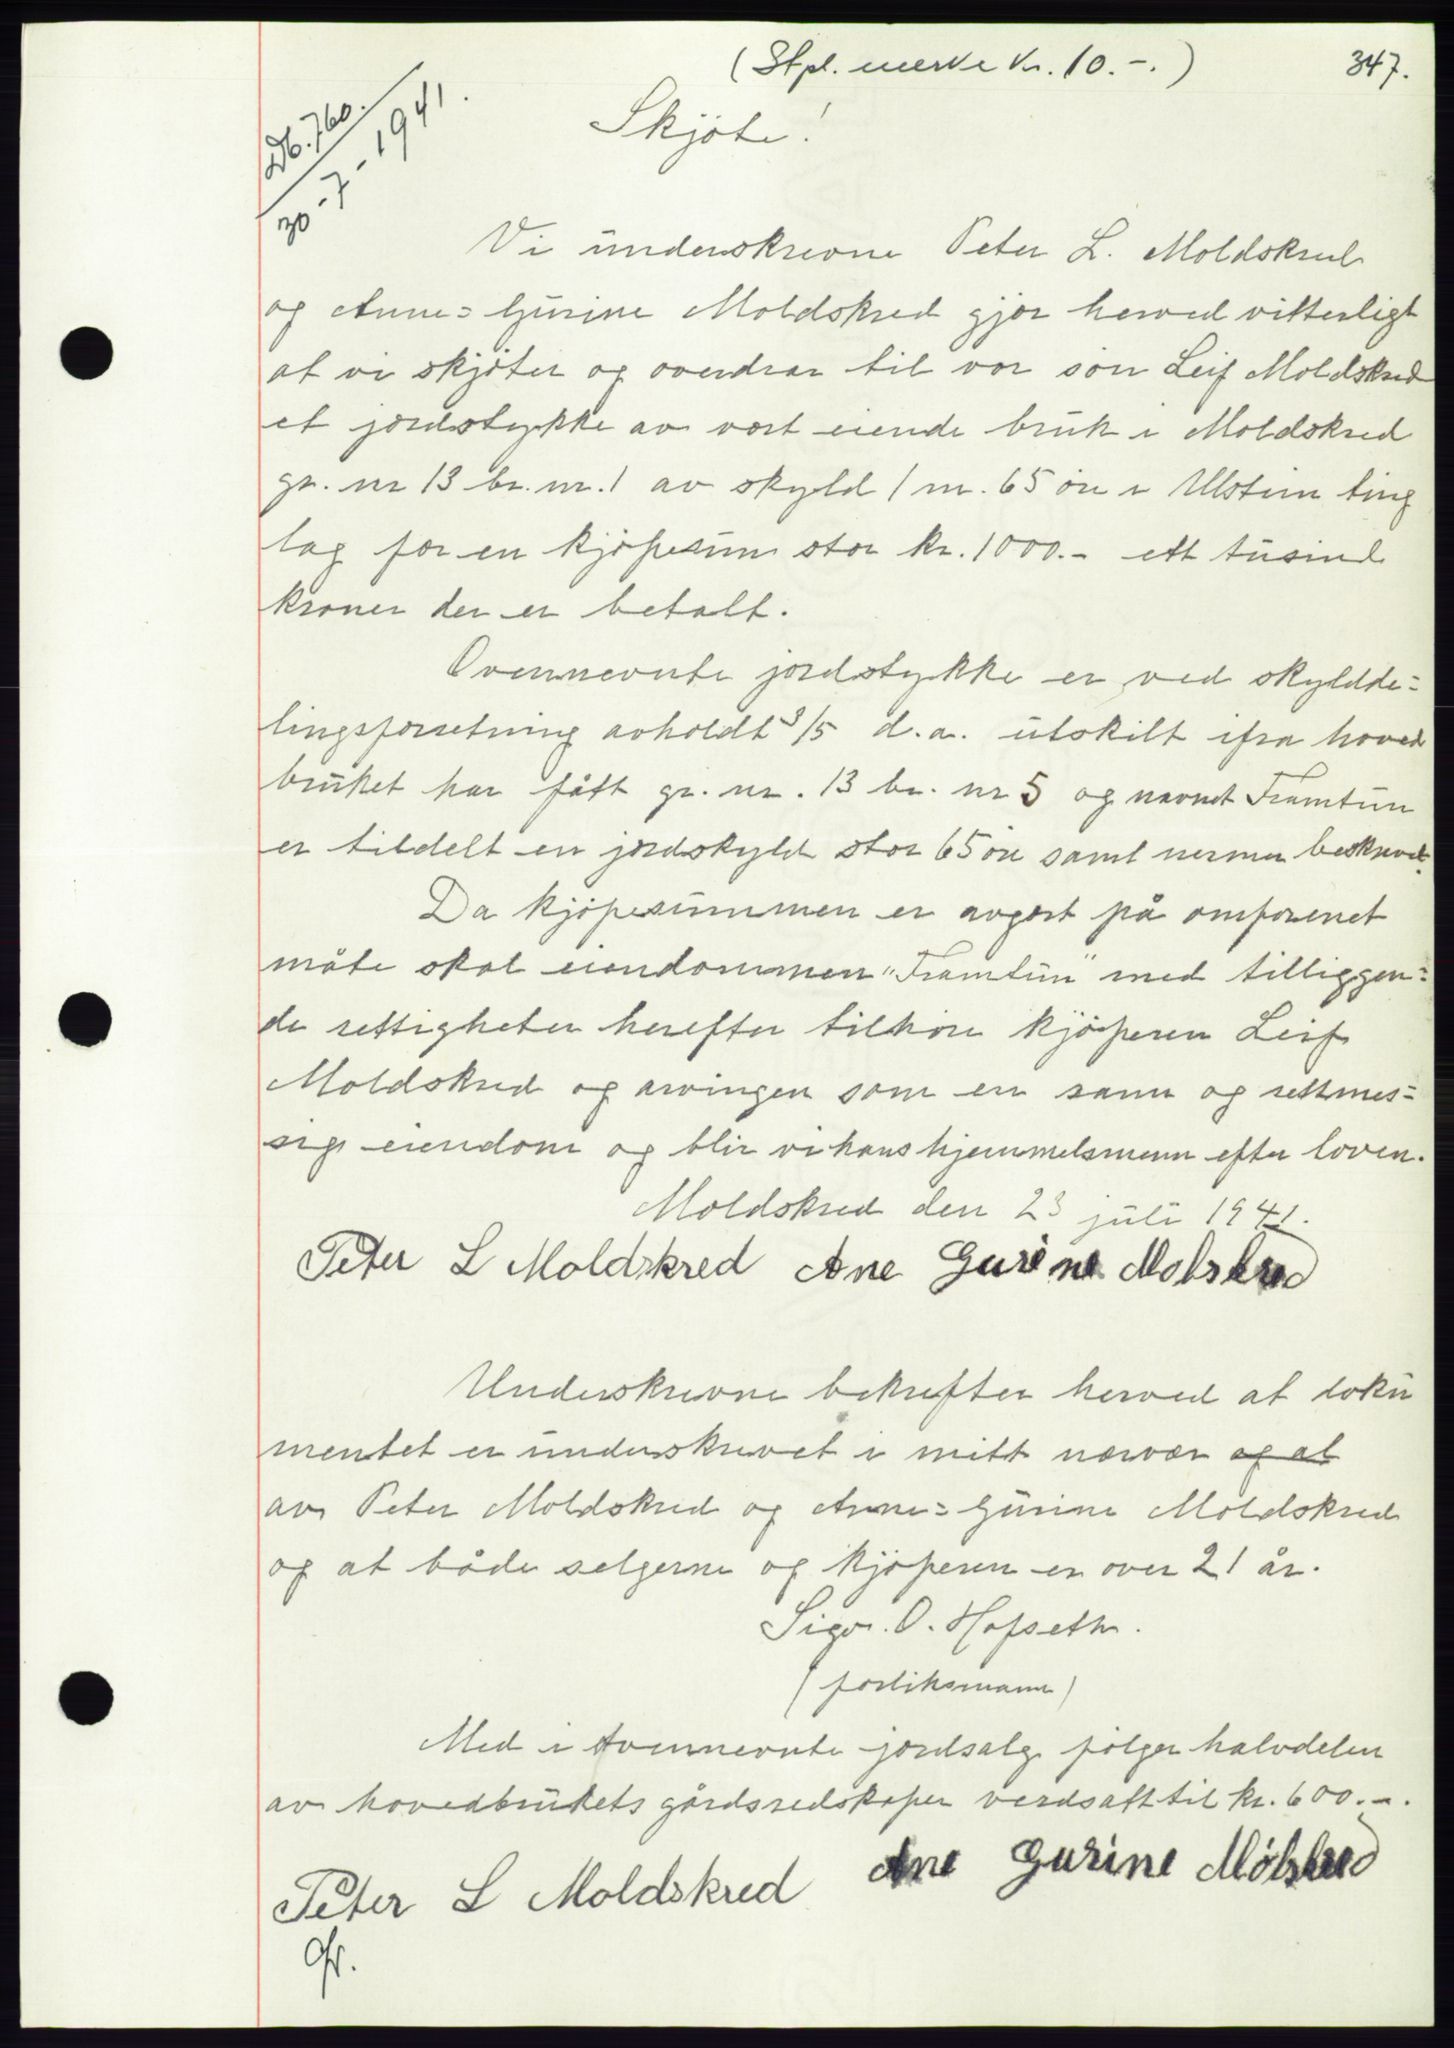 (Stpl. merke kr. 10.-.)
347.
Db. 760.
30-7-1941.
Skjöte!
Vi underskrevne Peter L. Moldskred
og Anne=Gurine Moldskred gjör herved vitterligt
at vi skjöter og overdrar til vor sön Leif Moldskred
et jordstykke av vort eiende bruk i Moldskred
gr. nr 13 br. nr. 1 av skyld 1 m. 65 öre i Ulstein ting
lag for en kjöpesum stor kr. 1000.- ett tusind
kroner der er betalt.
Ovennevnte jordstykke er ved skyldde=
lingsforretning avholdt 3/5 d.a. utskilt ifra hoved
bruket har fått gr. nr. 13 br. nr 5 og navnet Framtun
er tildelt en jordskyld stor 65 öre samt nermer beskrevet.
Da kjöpesummen er avgort på omforenet
måte skal eiendommen "Framtun" med tilliggen=
de rettigheter herefter tilhöre kjöperen Leif
Moldskred og arvinger som en sann og rettmes=
sig eiendom og blir vi hans hjemmelsmenn efter loven.
Moldskred den 23 juli 1941.
Peter L Moldskred Ane Gurine Molskred
Underskrevne bekrefter herved at doku
mentet er underskrevet i mitt nærvær og at
av Peter Moldskred og Anne=Gurine Moldskred
og at både selgerne og kjöperen er over 21 år.
Sigv. O. Hofseth.
(forliksmann)
Med i ovennevnte jordsalg fölger halvdelen
av hovedbrukets gårdsredskaper verdsatt til kr. 600.-.
Peter L Moldskred Ane Gurine Mølskred